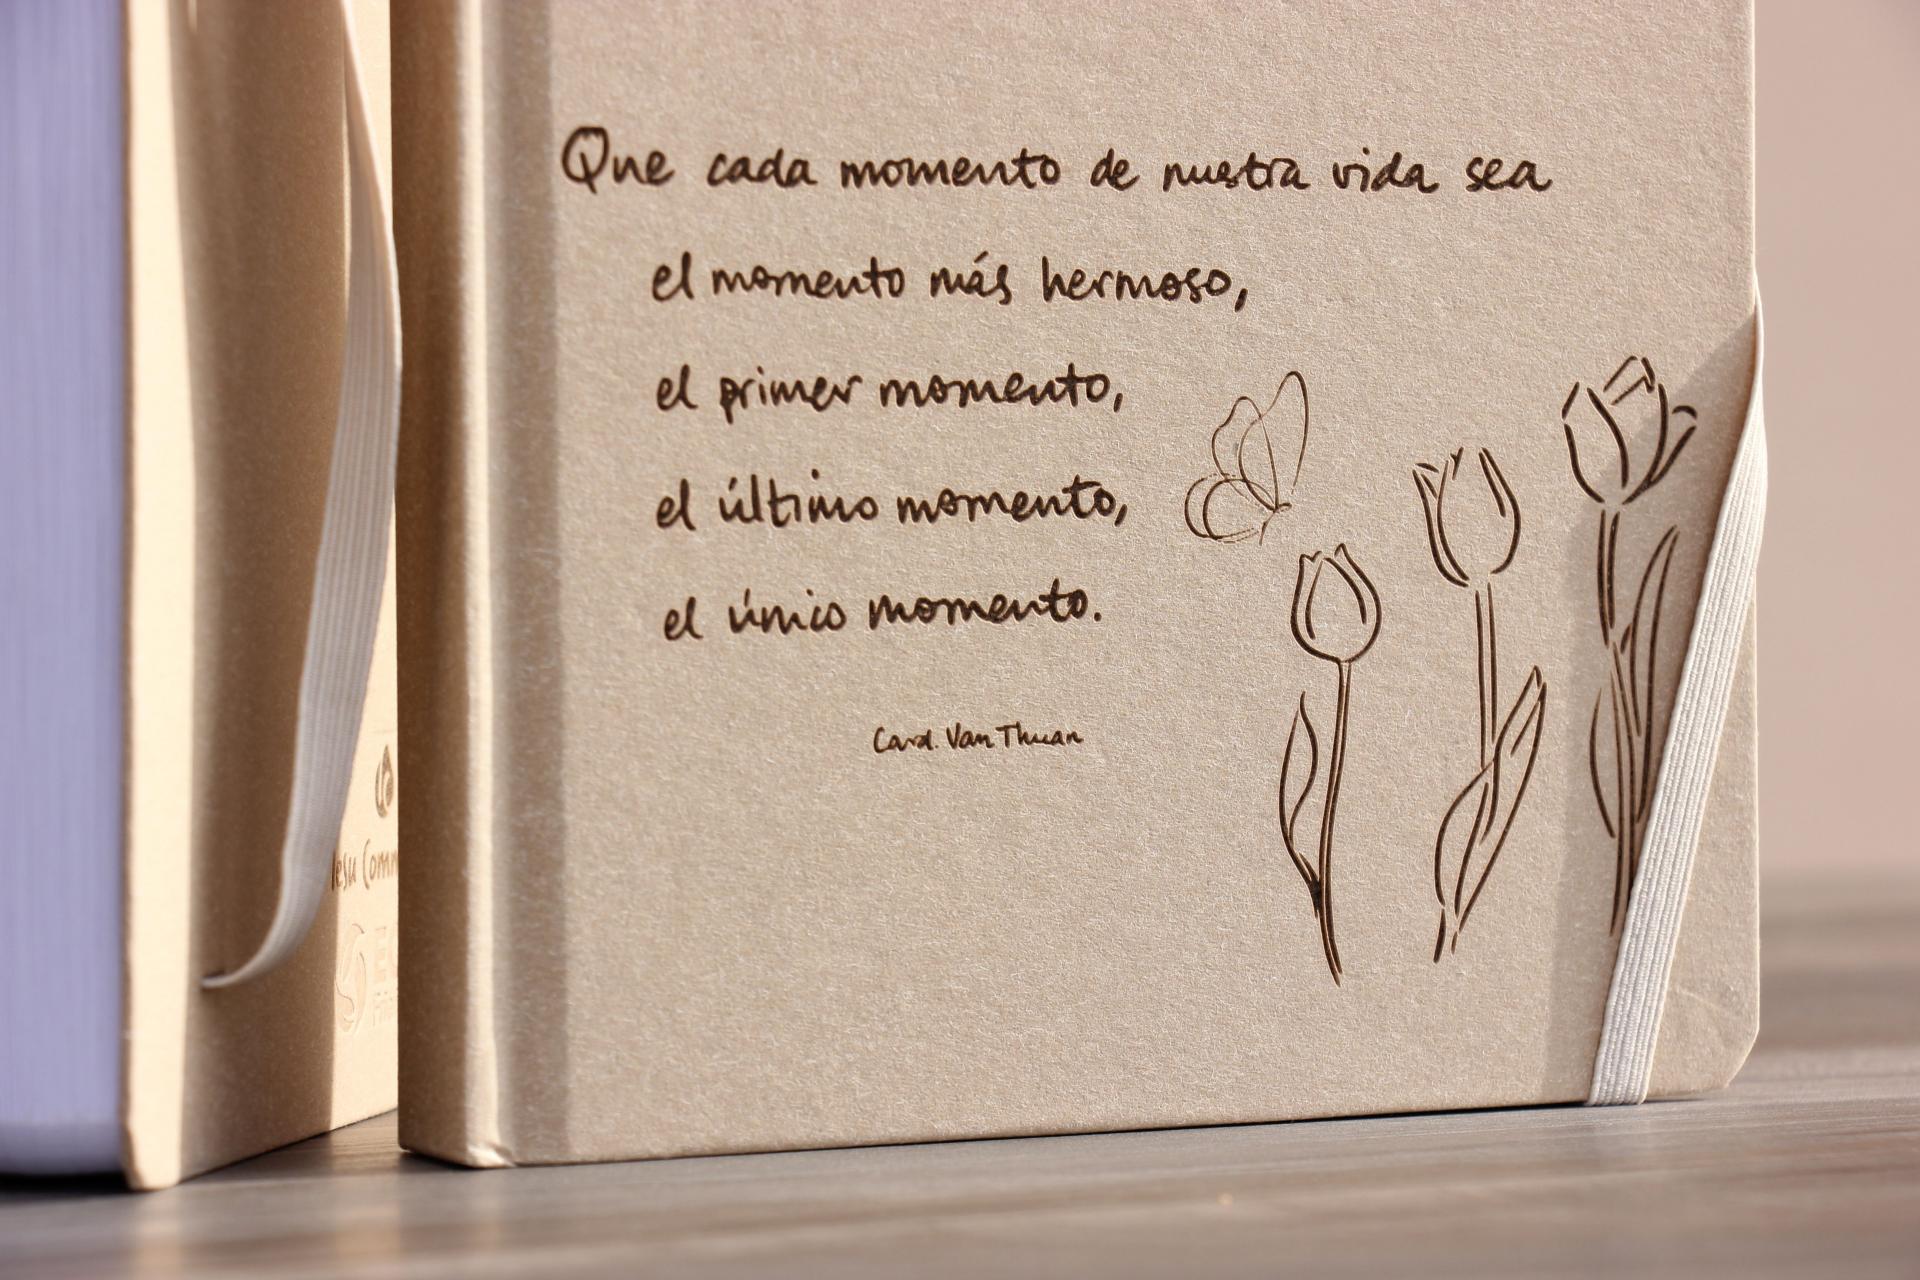 Que cada momento de nuestra vida sea
el momento más hermoso,
el primer momento,
el último momento,
el único momento.
Card. Van Thuan